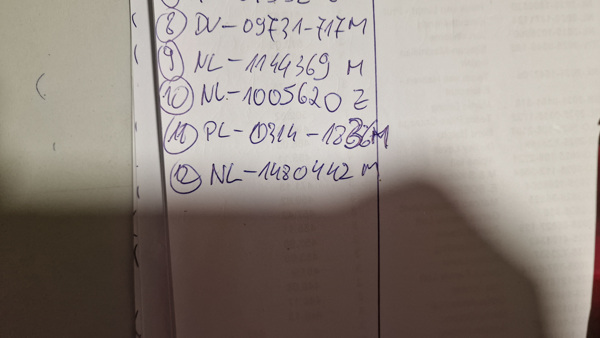 8 DV-09731-717 M
9 NL-1144369 M
10 NL-1005620 Z
11 PL-0314-1836 M
12 NL-1480442 M